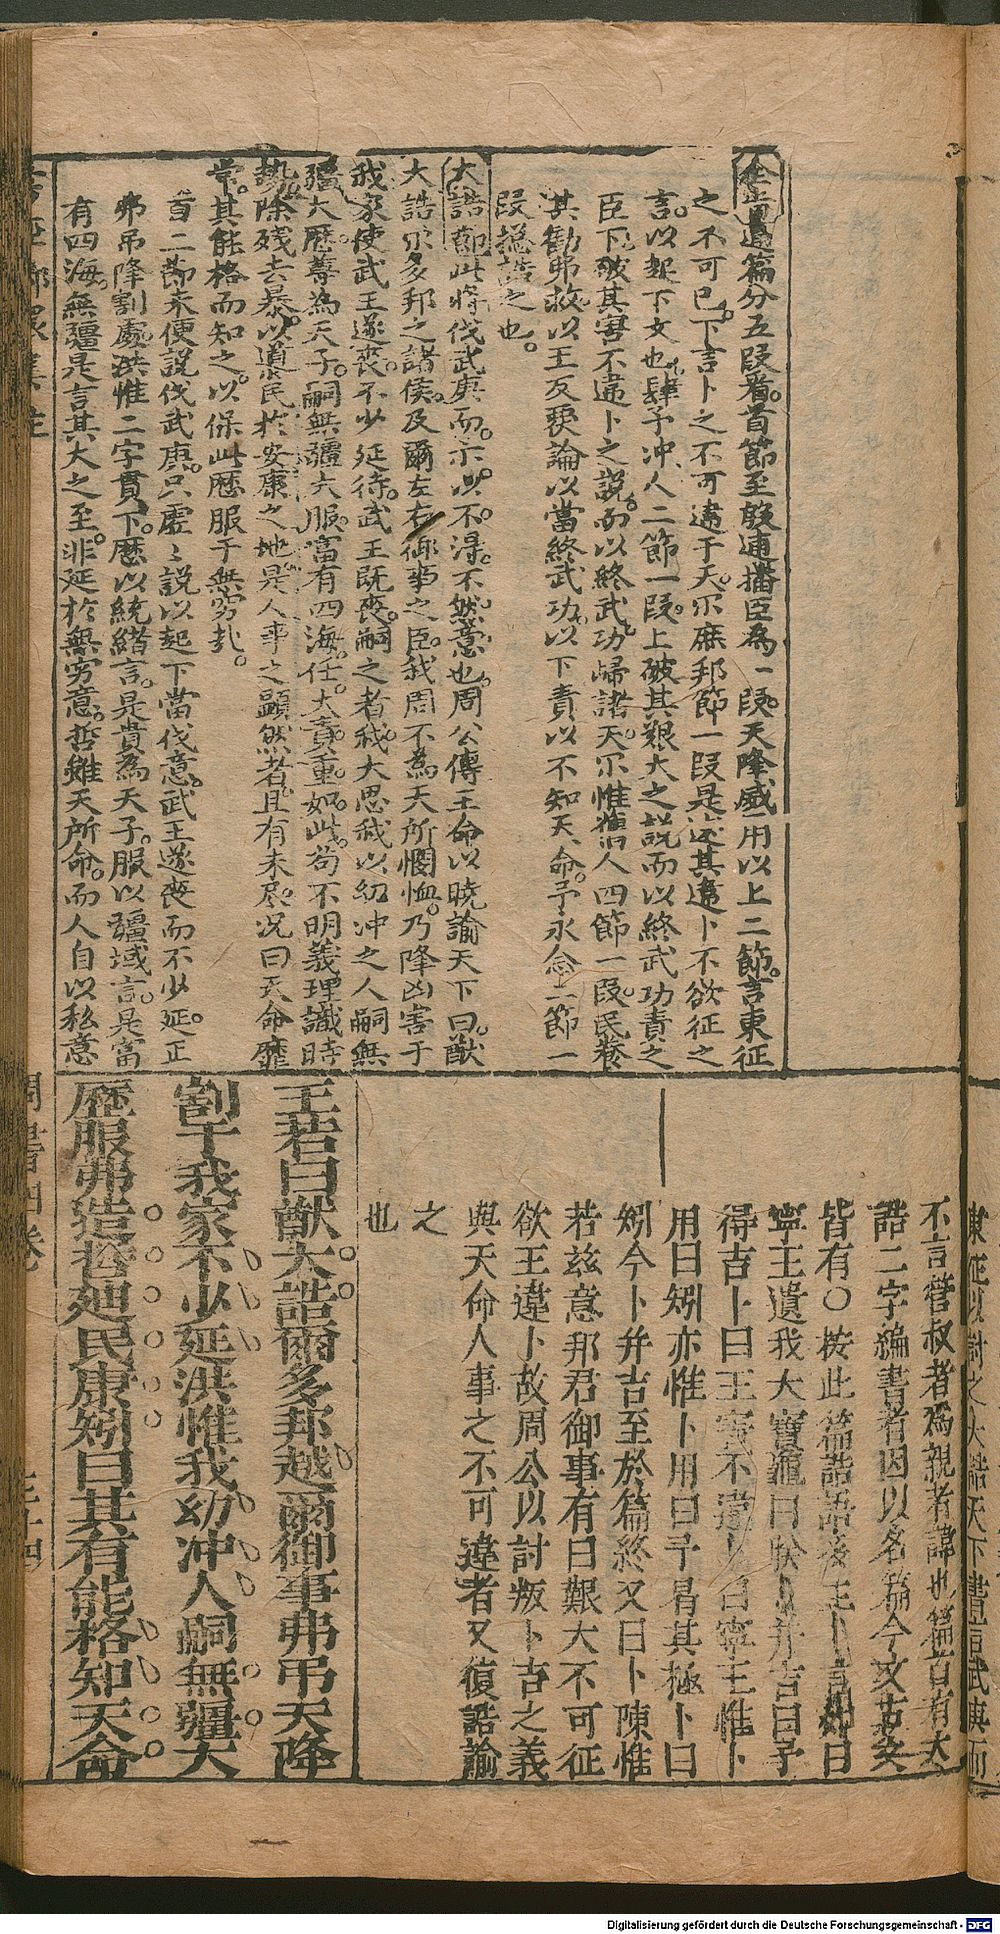 東征以討之大誥天下書言武庚而
不言管叔者為親者諱也篇首有大
誥二字編書者因以名篇今文古文
皆有○按此篇誥語多主卜言如曰
寧王遺我大寶龜曰朕卜并吉曰予
得吉卜曰王害不違卜曰寧王惟卜
用曰矧亦惟卜用曰予曷其極卜曰
矧今卜并吉至於篇終又曰卜陳惟
若茲意邦君御事有曰艱大不可征
欲王違卜故周公以討叛卜吉之義
與天命人事之不可違者又復誥諭
之
也
通篇分五段看。首節至殷逋播臣為一段。天降威用以上二節。言東征
之不可已。下言卜之不可違于天。尔庶邦節一段是述其違卜不欲征之
言。以起下文也。肆予冲人二節一段。上破其艱大之說而以終武功責之
臣下。破其害不違卜之說。而以終武功歸諸天。尔惟舊人四節一段。民養
其勸弗救以王反覆論以當終武功。以下責以不知天命。予永念二節一
段總誥之也。
大誥節此將伐武庚而示以不得不然意也。周公傳王命以曉諭天下曰。猷
大誥尔多邦之諸侯。及爾左右御事之臣。我周不為天所憫恤。乃降凶害于
我家使武王遂喪。不少延待。武王既喪。嗣之者我大思我以幼冲之人嗣無
疆大歷尊為天子。嗣無疆大服。富有四海。任大責重如此。茍不明義理識時
勢除殘去暴以導民於安康之地。是人事之顯然者。且有未盡。况曰天命靡
常。其能格而知之。以保此歷服于無穷哉。
首二節未便說伐武庚。只虛〻說以起下當伐意。武王遂喪而不少延。正
弗吊降割處。洪惟二字貫下。歷以統緒言。是貴為天子。服以疆域言。是富
有四海。無疆是言其大之至。非延於無穷意。哲雖天所命。而人自以私意
王若曰猷大誥爾多邦越爾御事弗弔天降
割于我家不少延洪惟我幼冲人嗣無疆大
歷服弗造哲廸民康矧曰其有能格知天命
周書四卷